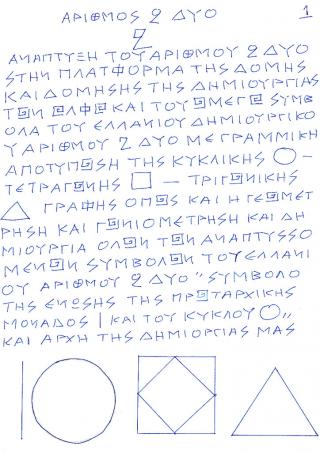 ΑΡΙΘΜΟΣ 2 ΔΥΟ 1
2
ΑΝΑΠΤΥΞΗ ΤΟΥ ΑΡΙΘΜΟΥ 2 ΔΥΟ
ΣΤΗΝ ΠΛΑΤΦΟΡΜΑ ΤΗΣ ΔΟΜΗΣ
ΚΑΙ ΔΟΜΗΣΗΣ ΤΗΣ ΔΗΜΙΟΥΡΓΙΑΣ
ΤΩΝ ΑΛΦΑ ΚΑΙ ΤΟΥ ΩΜΕΓΑ ΣΥΜΒ
ΟΛΑ ΤΟΥ ΕΛΛΑΝΙΟΥ ΔΗΜΙΟΥΡΓΙΚΟ
Υ ΑΡΙΘΜΟΥ 2 ΔΥΟ ΜΕ ΓΡΑΜΜΙΚΗ
ΑΠΟΤΥΠΩΣΗ ΤΗΣ ΚΥΚΛΙΚΗΣ ◯ –
ΤΕΤΡΑΓΩΝΗΣ □ — ΤΡΙΓΩΝΙΚΗΣ
△ ΓΡΑΦΗΣ ΟΠΩΣ ΚΑΙ Η ΓΕΩΜΕΤ
ΡΗΣΗ ΚΑΙ ΓΩΝΙΟΜΕΤΡΗΣΗ ΚΑΙ ΔΗ
ΜΙΟΥΡΓΙΑ ΟΛΩΝ ΤΩΝ ΑΝΑΠΤΥΣΣΟ
ΜΕΝΩΝ ΣΥΜΒΟΛΩΝ ΤΟΥ ΕΛΛΑΝΙ
ΟΥ ΑΡΙΘΜΟΥ 2 ΔΥΟ " ΣΥΜΒΟΛΟ
ΤΗΣ ΕΝΩΣΗΣ ΤΗΣ ΠΡΩΤΑΡΧΙΚΗΣ
ΜΟΝΑΔΟΣ | ΚΑΙ ΤΟΥ ΚΥΚΛΟΥ ◯ „
ΚΑΙ ΑΡΧΗ ΤΗΣ ΔΗΜΙΟΡΓΙΑΣ ΜΑΣ